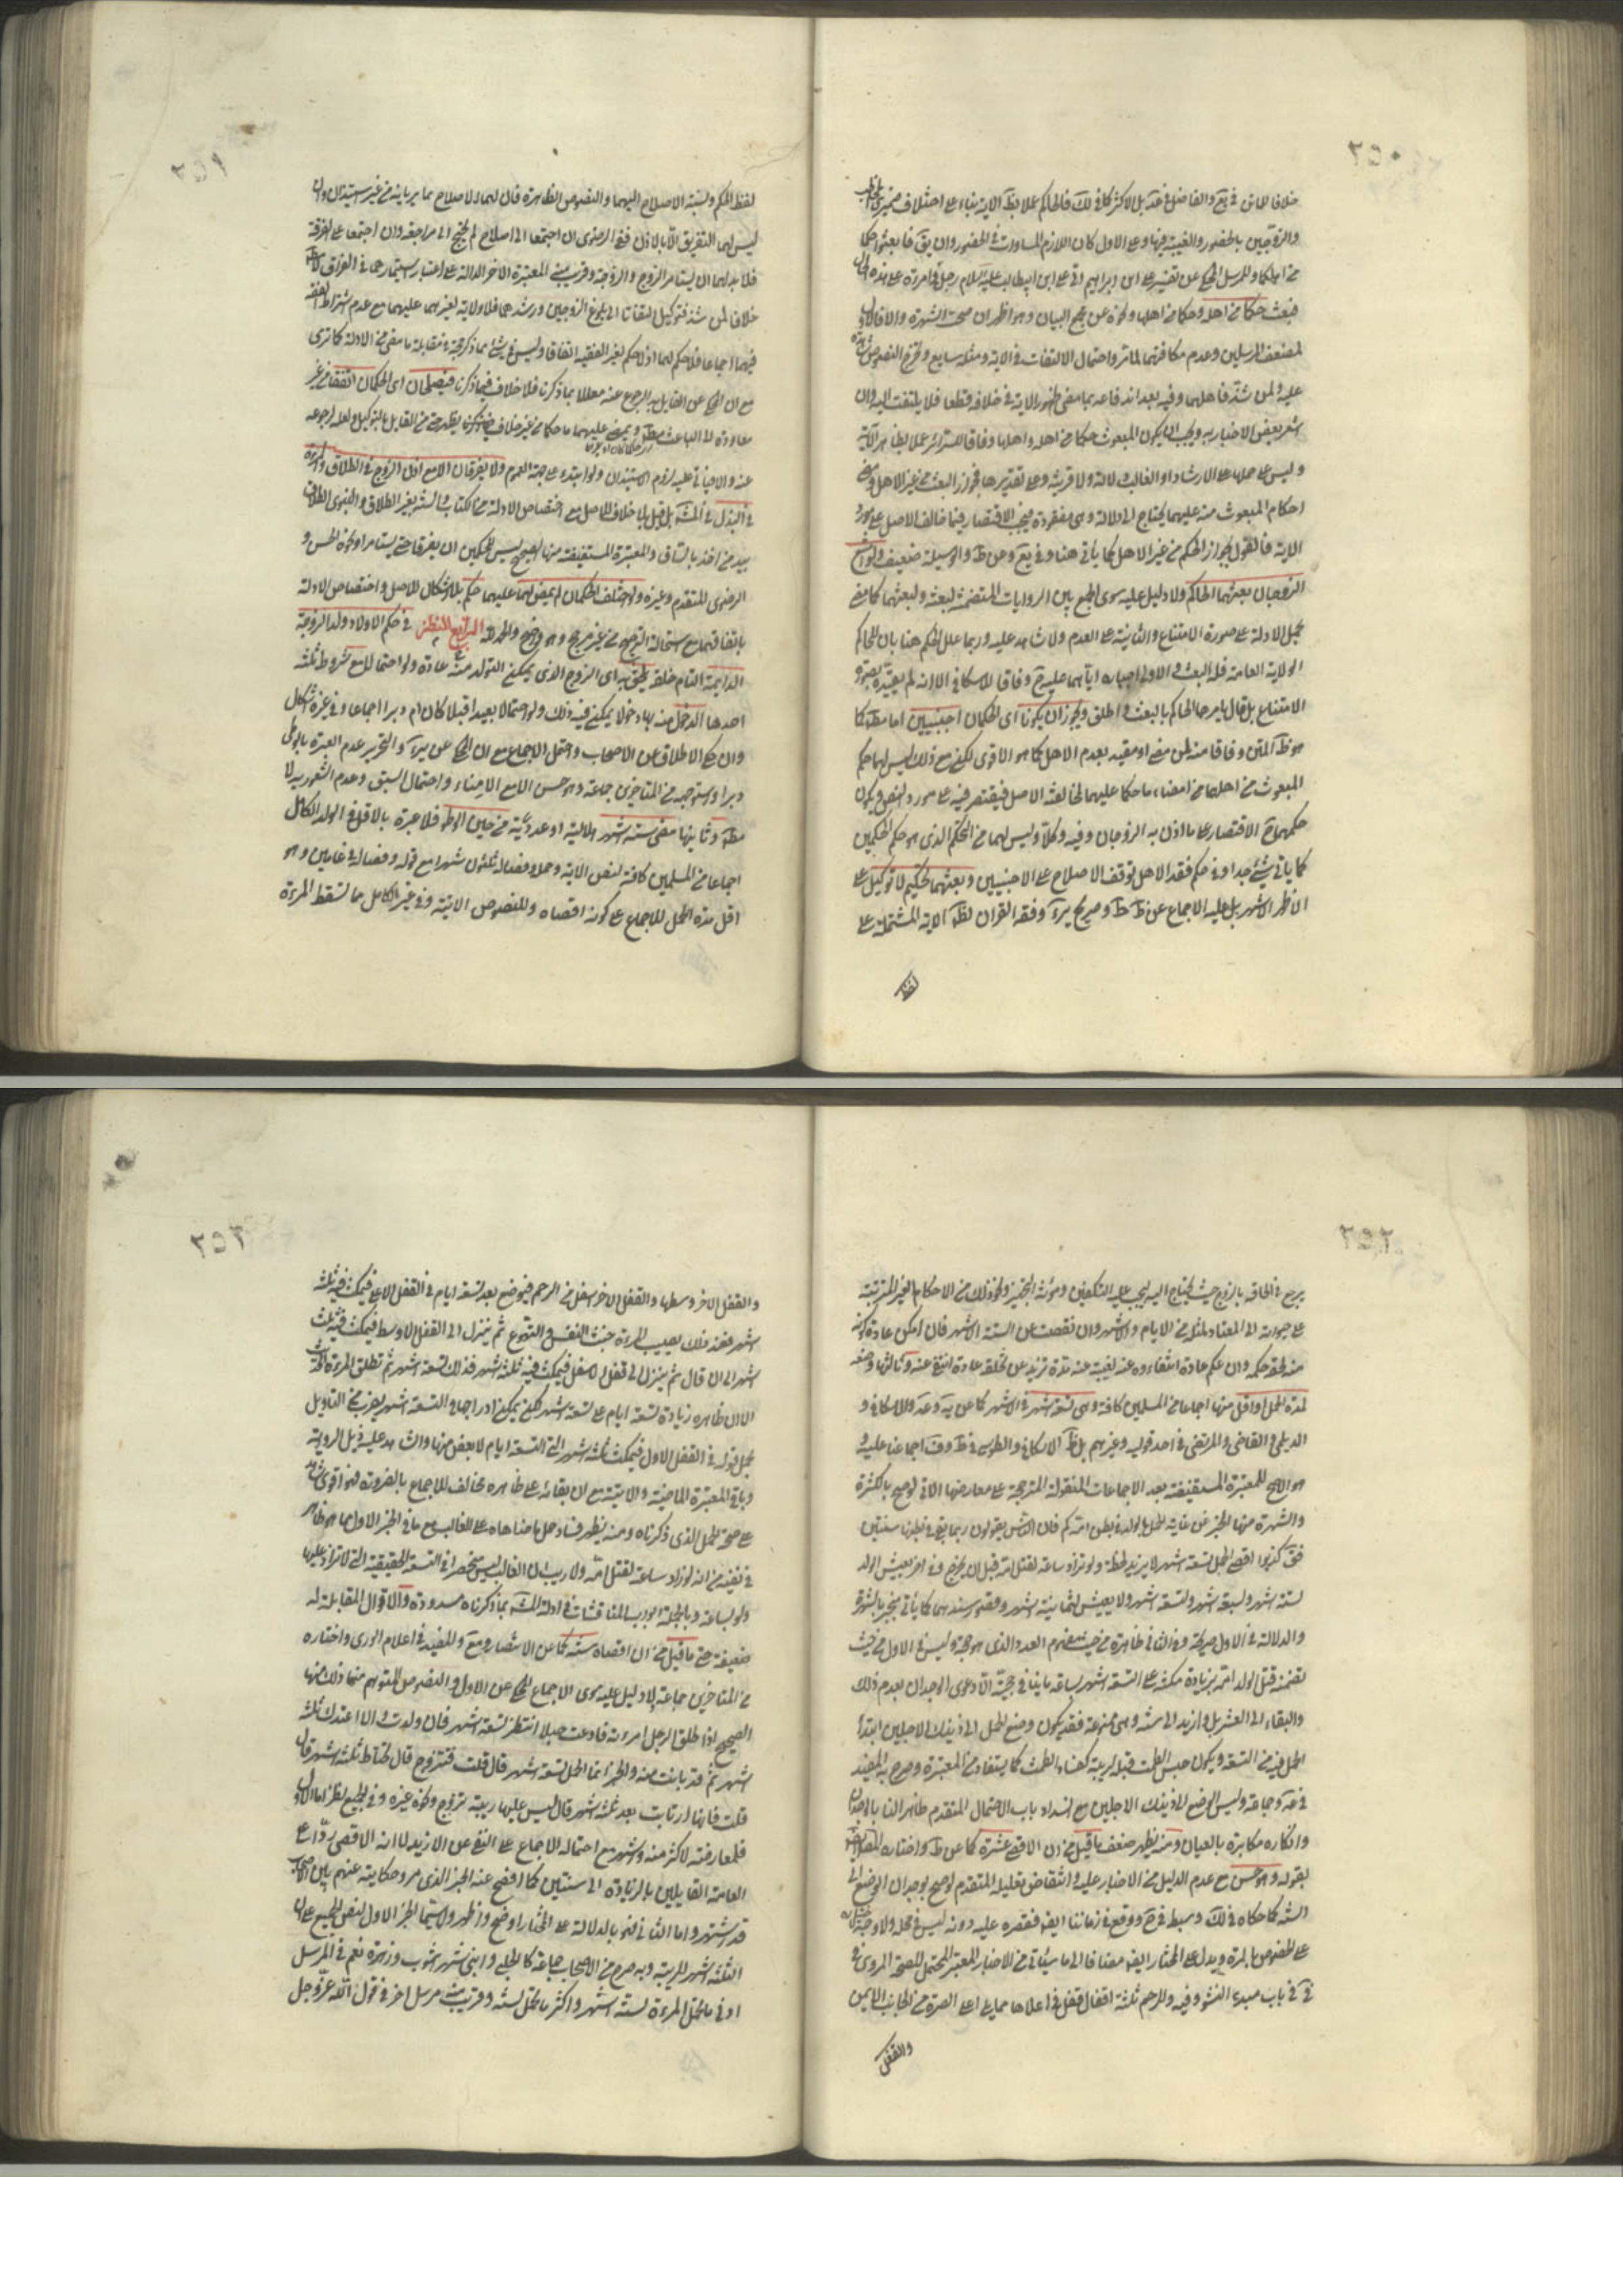 ٢٥٠
خلافا للماتن في يع والفاضل في عد بل الاكثر كما في لك فالحاكم عملا بظ الآية بناء على اختلاف ضميري
والزوجين بالحضور والغيبة فيها وعلى الاول كان اللازم المساواة في الحضور وان يق فابعثوا حكما
من اهلكما وللمرسل المحكي عن تفسير علي ابن ابراهيم اتى علي ابن ابيطالب عليه السلام رجل وامرءة على هذه الحال
فبعث حكما من اهله وحكما من اهلها ونحوه عن مجمع البيان وهو اظهر ان صحت الشهرة والا فالاول
لضعف المرسلين وعدم مكافئتهما لما مر واحتمال الالتفات في الاية ومثله سايع
عليه ولمن شذ فاهلهما وفيه بعد اندفاعه بما مضى ظهور الاية في خلافه قطعا فلا يلتفت اليه وان
اشعر بعض الاخبار به ويجب ان يكون المبعوث حكما من اهله واهلها وفاقا للسرائر عملا بظاهر الآية
وليس على حملها على الارشاد او الغالب دلالة ولا قرينة وعلى تقديرها فجواز البعث من غير الاهل ومضي
احكام المبعوث منه عليهما يحتاج الى دلالة وهي مفقودة فيجب الاقتصار فيما خالف الاصل على مورد
الاية فالقول بجواز الحكم من غير الاهل كما ياتي هنا وفي يع وعن ط والوسيلة ضعيف ولو امتنع
الزوجان بعثهما الحاكم ولا دليل عليه سوى الجمع بين الروايات المتضمنة لبعثه ولبعثهما كما مضى
بحمل الادلة على صورة الامتناع والثانية على العدم ولا شاهد عليه وربما علل الحكم هنا بان للحاكم
الولاية العامة فله البعث والاولى اجباره اياهما عليه ح وفاقا للاسكافي الا انه لم يقيده بصورة
الامتناع بل قال يامرهما الحاكم بالبعث واطلق ويجوز ان يكونا اي الحكمان اجنبيين اما مطلقا كما
هو ظ المتن وفاقا منه لمن مضى او مقيد بعدم الاهل كما هو الاقوى لكن مع ذلك ليس لهما حكم
المبعوث من اهلهما من امضاء ما حكما عليهما لمخالفته الاصل فيقتصر فيه على مورد النص ويكون
حكمهما ح الاقتصار على ما اذن به الزوجان وفيه وكلا وليس لهما من التحكم الذي هو حكم الحكمين
كما ياتي شيء جدا وفي حكم فقد الاهل توقف الاصلاح على الاجنبيين وبعثهما تحكيم لا توكيل على
الاظهر الاشهر بل عليه الاجماع عن ظ ط وصريح ئر وفقه القران لظ الاية المشتملة على
لفظ
٢٥١
لفظ الحكم ونسبة الاصلاح اليهما والنصوص الظاهرة فان لهما الاصلاح بما يريانه من غير استيذان وان
ليس لهما التفريق الا بالاذن ففي الرضوي ان اجتمعا الى اصلاح لم يحتج الى مراجعة وان اجتمعا على الفرقة
فلا بد لهما ان يستامرا الزوج والزوجة وقريب منه المعتبرة الاخر الدالة على اعتبار استيمارهما في الفراق
خلافا لمن شذ فتوكيل التفاتا الى بلوغ الزوجين ورشدهما فلا ولاية لغيرهما عليهما مع عدم اشتراط الفقه
فيهما اجماعا فلا حكم لهما اذ لا حكم لغير الفقيه اتفاقا وليس في شيء مما ذكر حجة في مقابلة ما مضى من الادلة كما ترى
مع ان المحكي عن القايل به الرجوع عنه معللا بما ذكرنا فلا خلاف فيما ذكرنا فيصلحان اي الحكمان اتفقا من غير
معاودة الى الباعث مطلقا ويمضي عليهما ما حكما من غير خلاف يظهر حتى من القايل بالتوكيل ولعله لرجوعه
عنه والا فينافي عليه لزوم الاستيذان ولو ابتدء على جهة العموم ولا يفرقان الا مع اذن الزوج في الطلاق والمرءة
في البذل في المشهور بل قيل بلا خلاف للاصل مع اختصاص الادلة من الكتاب والسنة بغير الطلاق والنبوي الطلاق
بيد من اخذ بالساق والمعتبرة المستفيضة منها الصحيح ليس للحكمين ان يفرقا حتى يستامرا ونحوه الحسن و
الرضوي المتقدم وغيره ولو اختلف الحكمان لم يمض لهما عليهما حكم بلا اشكال للاصل واختصاص الادلة
باتفاقهما مع استحالة الترجيح من غير مرجح وهو واضح والحمد لله الرابع النظر في حكم الاولاد ولد الزوجة
الدايمة التام خلقة يلحق به اي الزوج الذي يمكن التولد منه عادة ولو احتمالا مع شروط ثلثة
احدها الدخول منه بها دخولا يمكن فيه ذلك ولو احتمالا بعيدا قبلا كان ام دبرا اجماعا وفي غيره اشكل
وان حكي الاطلاق عن الاصحاب واحتمل الاجماع مع ان المحكي عن ئر والتحرير عدم العبرة بالوطي
دبرا واستوجبه من المتاخرين جماعة وهو حسن الا مع الامناء واحتمال السبق وعدم الشعور به لا
مطلقا وثانيها مضي ستة اشهر هلالية او عددية من حين الوطي فلا عبرة بالاقل في الولد الكامل
اجماعا من المسلمين كافة لنص الاية وحمله وفصاله ثلثون شهرا مع قوله وفصاله في عامين وهو
اقل مدة الحمل للاجماع على كونه اقصاه وللنصوص الاتية وفي غير الكامل مما تسقط المرءة
٢٥٢
يرجع في الحاقه بالزوج حيث يحتاج اليه ليجب عليه التكفين ومؤنة التجهيز ونحو ذلك من الاحكام الغير المترتبة
على حيوته الى المعتاد لمثله من الايام والاشهر وان نقصت عن الستة الاشهر فان امكن عادة كونه
منه لحقه حكمه وان علم عادة انتفاءه عنه لغيبته عنه مدة تزيد عن تخلقه عادة انتفى عنه وثالثها وضعه
لمدة الحمل او اقل منها اجماعا من المسلمين كافة وهي تسعة اشهر في الاشهر كما عن ية وعد وللاسكافي و
الديلمي والقاضي والمرتضى في احد قوليه وغيرهم بل ظ الاسكافي والطوسي في ظ وف اجماعنا عليه و
هو الاصح للمعتبرة المستفيضة بعد الاجماعات المنقولة المترجحة على معارضها الاتي لوضح بالكثرة
والشهرة منها الخبر عن غاية الحمل بالولد في بطن امه كم فان الناس يقولون ربما بقي في بطنها سنتين
فق كذبوا اقصى الحمل تسعة اشهر لا يزيد لحظة ولو زاد ساعة لقتل امه قبل ان يخرج وفي اخر يعيش الولد
لستة اشهر ولسبعة اشهر ولتسعة اشهر ولا يعيش لثمانية اشهر وقصور سندهما كما ياتي منجبر بالشهرة
والدلالة في الاول صريحة وفي الثاني ظاهرة من حيث مفهوم العدد الذي هو حجة وليس في الاول من حيث
تضمنه قتل الولد امه بزيادة مكثه على التسعة اشهر بساعة ما ينافي حجيته الا دعوى الوجدان بعدم ذلك
والبقاء الى العشر بل وازيد الى سنة وهي ممنوعة فقد يكون وضع الحمل الى ذينك الاجلين ابتداء
الحمل فيه من التسعة ويكون حبس الطمث قبله لريبة كفساد الطمث كما يستفاد من المعتبرة وصرح به المفيد
في مة وجماعة وليس الوضع الى ذينك الاجلين مع انسداد باب الاحتمال المتقدم ظاهر النا بالوجدان
وانكاره مكابرة بالعيان ومنه يظهر ضعف ما قيل من ان الاقصى عشرة كما عن ط واختاره
بقوله وهو حسن مع عدم الدليل من الاخبار عليه وانتقاض تعليله المتقدم لوضح بوجدان الوضع الى
السنة كما حكاه في لك وسبطه في ح ووقع في زماننا ايضا فقصره عليه دونه ليس في محله
على الخصوص بالمرة ويدل على المختار ايضا مضافا الى ما سياتي من الاخبار المعتبر المحتمل للصحة المروي في
في في باب مبدء النشو وفيه وللرحم ثلثة اقفال قفل في اعلاها مما يلي اعلى الصرة من الجانب الايمن
والقفل
٢٥٣
والقفل الاخر وسطها والقفل الاخر اسفل من الرحم فيوضع بعد تسعة ايام في القفل الاعلى فيمكث فيه ثلثة
اشهر فعند ذلك يصيب المرءة خبث النفس والتهوع ثم ينزل الى القفل الاوسط فيمكث فيه ثلث
اشهر الى ان قال ثم ينزل الى قفل الاسفل فيمكث فيه ثلثة اشهر فذلك تسعة اشهر ثم تطلق المرءة
الا ان ظاهره زيادة تسعة ايام على تسعة اشهر لكن يمكن ادراجها في التسعة اشهر بضرب من التاويل
بحمل قوله في القفل الاول فيمكث ثلثة اشهر التي التسعة ايام لا بعض منها والشاهد عليه ذيل الرواية
وباقي المعتبرة الماضية والاتية مع ان ابقائه على ظاهره مخالف للاجماع بالضرورة فهو اقوى شاهد
على صحة الحمل الذي ذكرناه ومنه يظهر فساد حمل ما ضاهاه على الغالب مع ما في الخبر الاول مما هو ظاهر
في نفيه من انه لو زاد ساعة لقتل امه ولا ريب ان الغالب ليس منحصرا في التسعة الحقيقية التي لا تزاد عليها
ولو بساعة وبالجملة ابواب المناقشات في ادلة المشهور بما ذكرناه مسدودة والاقوال المقابلة له
ضعيفة حتى ما قيل من ان اقصاه سنة كما عن الانتصار ويع والمفيد في اعلام الورى واختاره
من المتاخرين جماعة ولا دليل عليه سوى الاجماع المحكي عن الاول والنصوص المتوهم منها ذلك منها
الصحيح اذا طلق الرجل امرءته فادعت حبلا انتظر تسعة اشهر فان ولدت والا اعتدت ثلثة
اشهر ثم قد بانت منه والخبر انما الحمل تسعة اشهر قال قلت فتتزوج قال تحتاط ثلثة اشهر قال
قلت فانها ارتابت بعد ثلثة اشهر قال ليس عليها ريبة تزوج ونحوه غيره وفي الجميع نظر اما الاول
فلمعارضته لاكثر منه واشهر مع احتماله الاجماع على النفي عن الازيد لا انه الاقصى ردا على
العامة القايلين بالزيادة الى سنتين كما افصح عنه الخبر الذي مر وحكايته عنهم بين الاصحاب
قد اشتهر واما الثاني فهو بالدلالة على المختار اوضح واظهر ولا سيما الخبر الاول لنص الجميع على ان
الثلثة اشهر للريبة وبه صرح من الاصحاب جماعة كالحلبي وابني شهراشوب وزهرة نعم في المرسل
ادنى ما تحمل المرءة لستة اشهر واكثر ما تحمل لسنة وقريب منه مرسل اخر في قول الله عز وجل